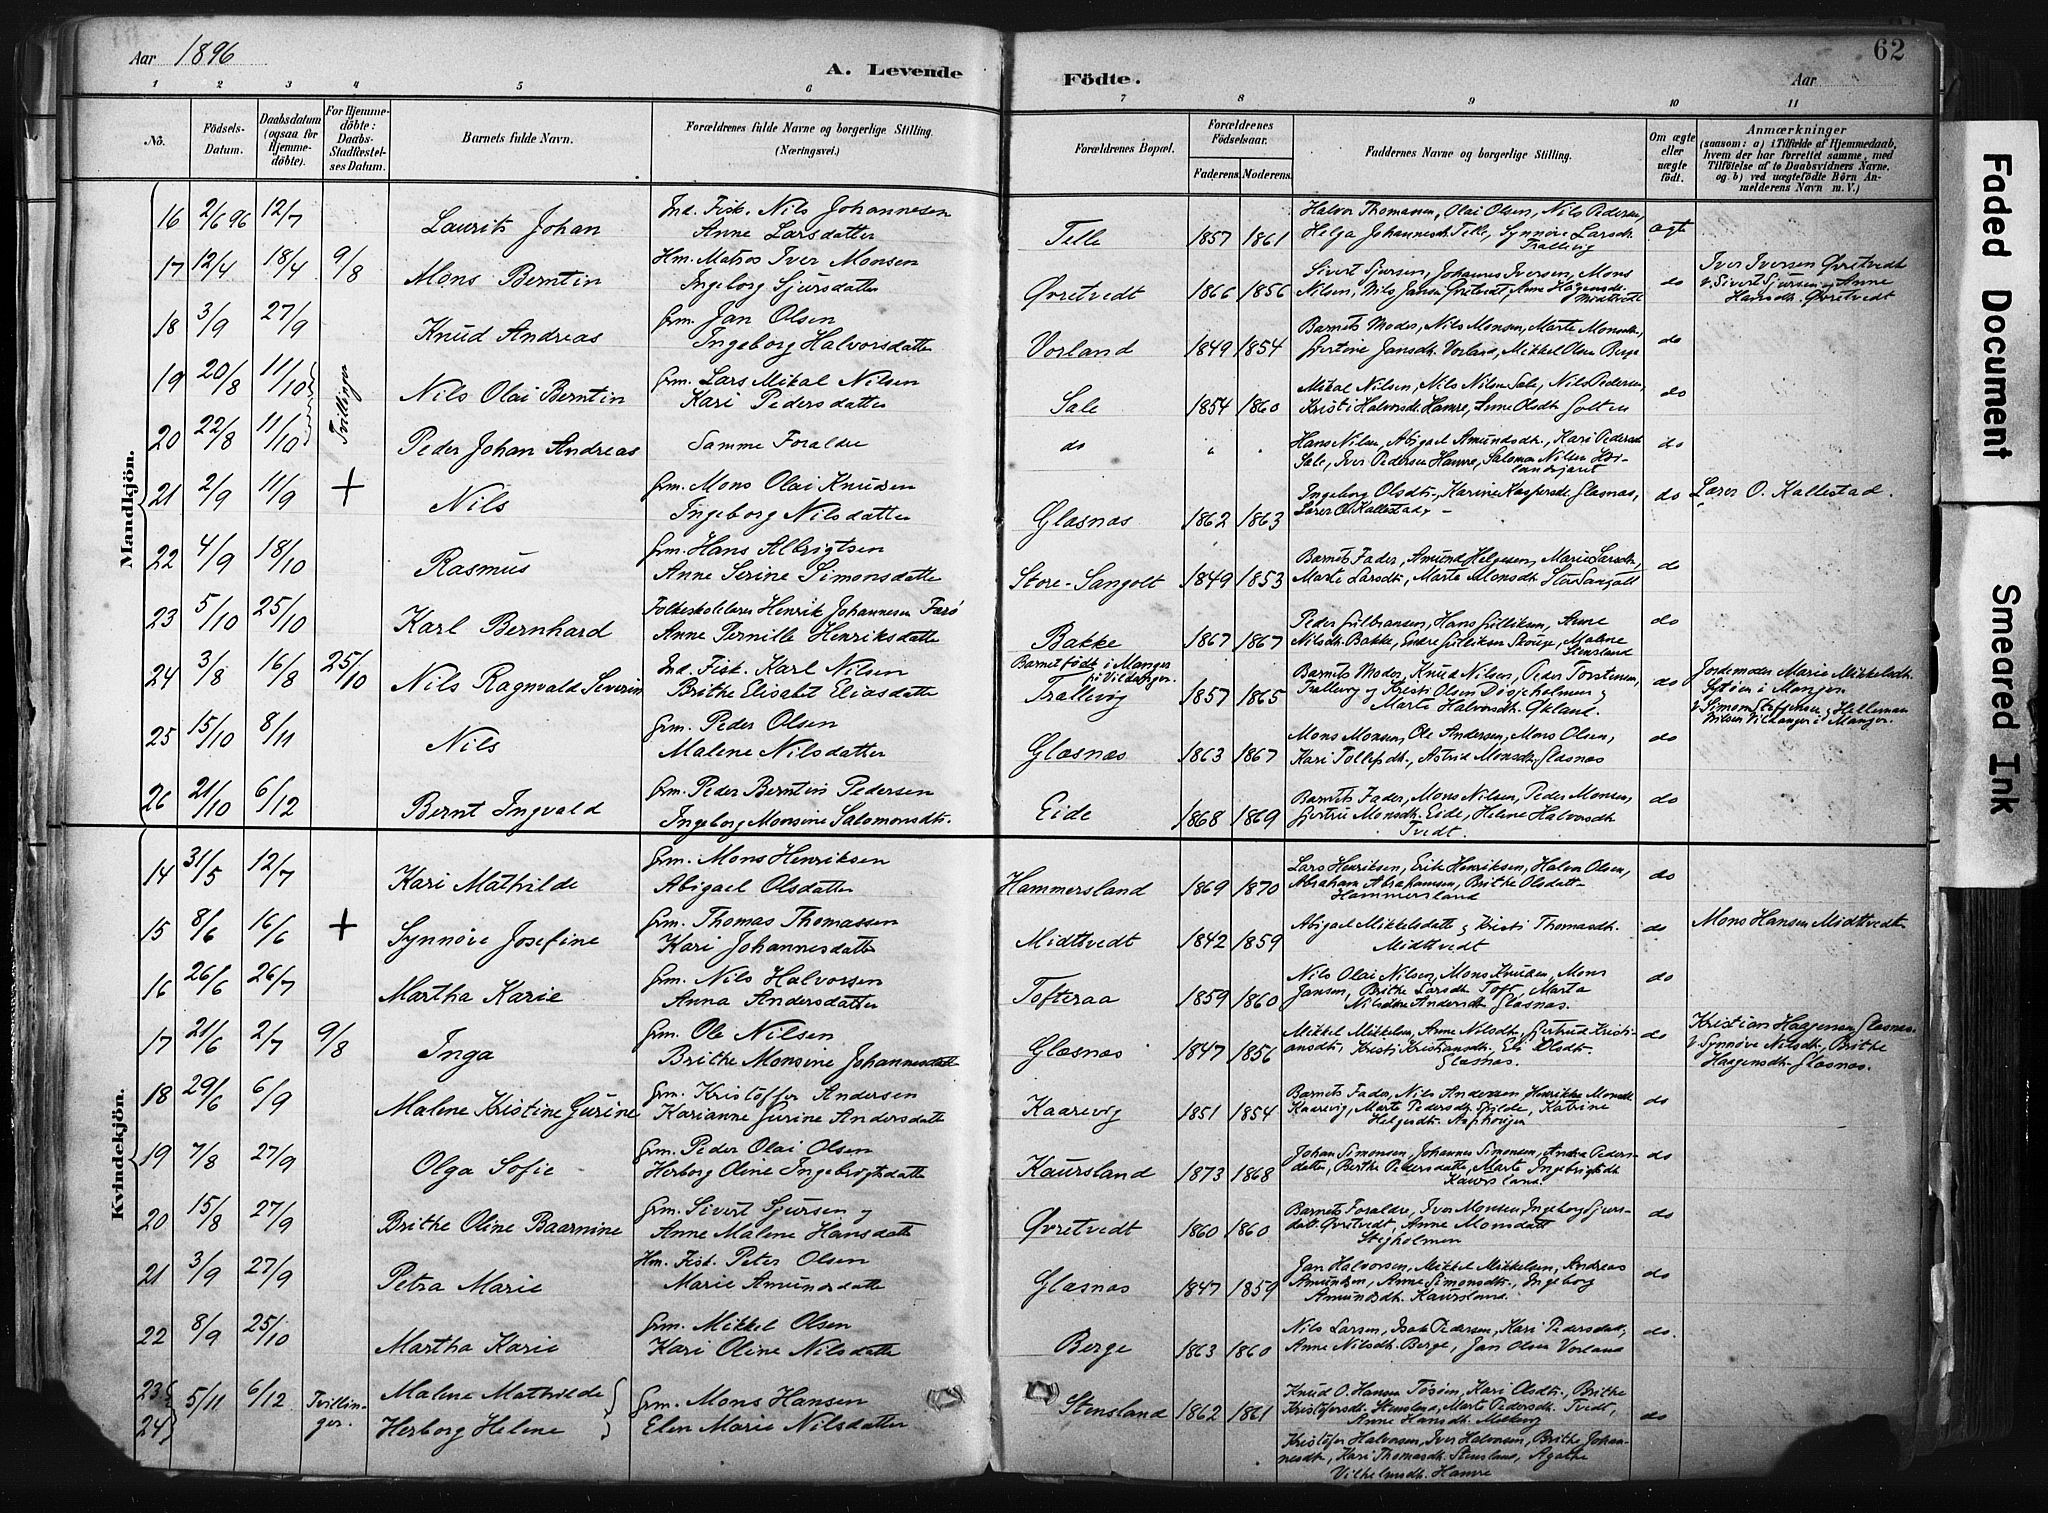 Aar 1896
A. Levende
Födte.
Aar
62
1 2 3 4 5 6 7 8 9 10 11
No.
Födsels-
Datum.
Daabsdatum
(ogsaa for
Hjemme-
döbte).
For Hjemme-
döbte:
Daabs-
Stadfæstel-
ses Datum.
Barnets fulde Navn.
Forældrenes fulde Navne og borgerlige Stilling.
(Næringsvei.)
Forældrenes Bopæl.
Forældrenes
Födselsaar.
Faderens. Moderens.
Faddernes Navne og borgerlige Stilling.
Om ægte
eller
uægte
födt.
Anmærkninger
(saasom: a) i Tilfælde af Hjemmedaab,
hvem der har forrettet samme, med
Tilföielse af to Daabsvidners Navne,
og b) ved uægtefödte Börn An-
melderens Navn m. V.)
Mandkjön.
16 2/6 96 12/7 Laurits Johan
Ind. Fisk. Nils Johannesen
Anne Larsdatter
Telle 1857 1861
Halvor Thomassen, Olai Olsen, Nils Pedersen,
Helga Johannesdt. Telle, Synnøve Larsdt.
Trallevig
ægte
17 12/4 18/4 9/8 Mons Berntin
Hm. Matros Iver Monsen
Ingeborg Sjursdatter
Øvretvedt 1866 1856
Sivert Sjursen, Johannes Iversen, Mons
Nilsen, Nils Jansen Øvretvedt, Anne Hagensdt.
Midttvedt
do
Iver Iversen Øvretvedt
v. Sivert Sjursen og Anne
Hansdt. Øvretvedt
18 3/9 27/9 Knud Andreas
Grm. Jan Olsen
Ingeborg Halvorsdatter
Vorland 1849 1854
Barnets Moder, Nils Monsen, Marte Monsdt.,
Gjertine Jansdt. Vorland, Mikkel Olsen Berge
do
19 20/8 11/10 Tvillinger Nils Olai Berntin
Grm. Lars Mikal Nilsen
Kari Pedersdatter
Sale 1854 1860
Mikal Nilsen, Nils Nilsen Sale, Nils Pedersen,
Kristi Halvorsdt. Hamre, Anne Olsdt. Golten
do
20 22/8 11/10 Peder Johan Andreas
Samme Forældre
do " "
Hans Nilsen, Abigael Amundsdt., Kari Pedersdt.
Sale, Iver Pedersen Hamre, Salomon Nilsen
do
21 2/9 11/9 + Nils
Grm. Mons Olai Knudsen
Ingeborg Nilsdatter
Glæsnæs 1862 1863
Ingeborg Olsdt., Karine Kaspersdt. Glæsnæs,
Lærer O. Kallestad, –
do
Lærer O. Kallestad.
22 4/9 18/10 Rasmus
Grm. Hans Albrigtsen
Anne Serine Simonsdatter
Store-Sangolt 1849 1853
Barnets Fader, Amund Helgesen, Marie Larsdt.,
Marte Larsdt., Marte Monsdt. Store Sangolt
do
23 5/10 25/10 Karl Bernhard
Folkeskolelærer Henrik Johannesen Færø
Anne Pernille Henriksdatter
Bakke 1867 1867
Peder Gulbransen, Hans Gulliksen, Anne
Nilsdt. Bakke, Endre Gulliksen Skouge, Malene
Stensland
do
24 3/8 16/8 25/10 Nils Ragnvald Severin
Ind. Fisk. Karl Nilsen
Brithe Elisabet Eliasdatter
Barnet født i Manger
på Vildanger.
Trallevig 1857 1865
Barnets Moder, Knud Nilsen, Peder Torstensen,
Trallevig og Kristi Olsen Døsjeholmen og
Marte Halvorsdt. Økland.
do
Jordemoder Marie Mikkelsdt.
Sætøen i Manger
v. Simon Steffensen og Helleman
Nilsen Vildanger i Manger.
25 15/10 8/11 Nils
Grm. Peder Olsen
Malene Nilsdatter
Glæsnæs 1863 1867
Mons Monsen, Ole Andersen, Mons Olsen,
Kari Tollefsdt., Astrid Monsdt. Glæsnæs
do
26 21/10 6/12 Bernt Ingvald
Grm. Peder Berntin Pedersen
Ingeborg Monsine Salomonsdt.
Eide 1868 1869
Barnets Fader, Mons Nilsen, Peder Monsen,
Gjertru Monsdt. Eide, Helene Halvorsdt.
Tvedt.
do
Kvindekjön.
14 31/5 12/7 Kari Mathilde
Grm. Mons Henriksen
Abigael Olsdatter
Hammersland 1869 1870
Lars Henriksen, Erik Henriksen, Halvor Olsen,
Abraham Abrahamsen, Brithe Olsdatt-
Hammersland
do
15 8/6 16/6 + Synnøve Josefine
Grm. Thomas Thomassen
Kari Johannesdatter
Midttvedt 1842 1859
Abigael Mikkelsdatter og Kristi Thomasdt.
Midttvedt
do
Mons Hansen Midttvedt
16 26/6 26/7 Martha Karie
Grm. Nils Halvorsen
Anna Andersdatter
Tofteraa 1859 1860
Nils Olai Nilsen, Mons Knudsen, Mons
Jansen, Brithe Larsdt. Toft, Marta
Nilsine Andersdt. Glæsnæs.
do
17 21/6 2/7 9/8 Inga
Grm. Ole Nilsen
Brithe Monsine Johannesdatter
Glæsnæs 1847 1856
Mikkel Mikkelsen, Anne Nilsdt., Gjertrud Kristi-
ansdt., Kristi Kristiansdt., Eli Olsdt.
Glæsnæs.
do
Kristian Haagensen Glæsnæs
v. Synnøve Nilsdt., Brithe
Haagensdt. Glæsnæs.
18 29/6 6/9 Malene Kristine Gurine
Grm. Kristoffer Andersen
Karianne Gurine Andersdatter
Kaarevig 1851 1854
Barnets Fader, Nils Andersen, Henrikke Monsdt.
Kaarevig, Marte Pedersdt. Spilde, Katrine
Helgesdt.
do
19 7/8 27/9 Olga Sofie
Grm. Peder Olai Olsen
Herborg Oline Ingebrigtsdatter
Kaursland 1873 1868
Johan Simonsen, Johannes Simonsen, Andrea Peders-
datter, Berthe Pedersdatter, Marte Ingebrigtsdt.
Kaursland.
do
20 15/8 27/9 Brithe Oline Baarnine
Grm. Sivert Sjursen og
Anne Malene Hansdatter
Øvretvedt 1860 1860
Barnets Forældre, Iver Monsen, Ingeborg Sjurs-
datt. Øvretvedt, Anne Monsdatt
Stegholmen
do
21 3/9 27/9 Petra Marie
Hm. Fisk. Peter Olsen
Marie Amundsdatter
Glæsnæs 1847 1859
Jan Halvorsen, Mikkel Mikkelsen, Andreas
Amundsen, Anne Simonsdt., Ingeborg
Amundsdt. Kaursland.
do
22 8/9 25/10 Martha Karie
Grm. Mikkel Olsen
Kari Oline Nilsdatter
Berge 1863 1860
Nils Larsen, Isak Pedersen, Kari Pedersdatt.,
Anne Nilsdt. Berge, Jan Olsen Vorland
do.
23 5/11 6/12 Tvillin-
24 ger.
Malene Mathilde
Herborg Helene
Grm. Mons Hansen
Elen Marie Nilsdatter
Stensland 1862 1861
Knud O. Hansen Tøsøen, Kari Olsdt., Brithe
Kristofersdt. Stensland, Marte Pedersdt. Tvedt,
Anne Hansdt.
do
Kristofer Halvorsen, Iver Halvorsen, Brithe Johan-
nesdt, Kari Thomasdt. Stensland, Agathe
Vilhelmsdt. Hamre
Faded Document
Smeared Ink